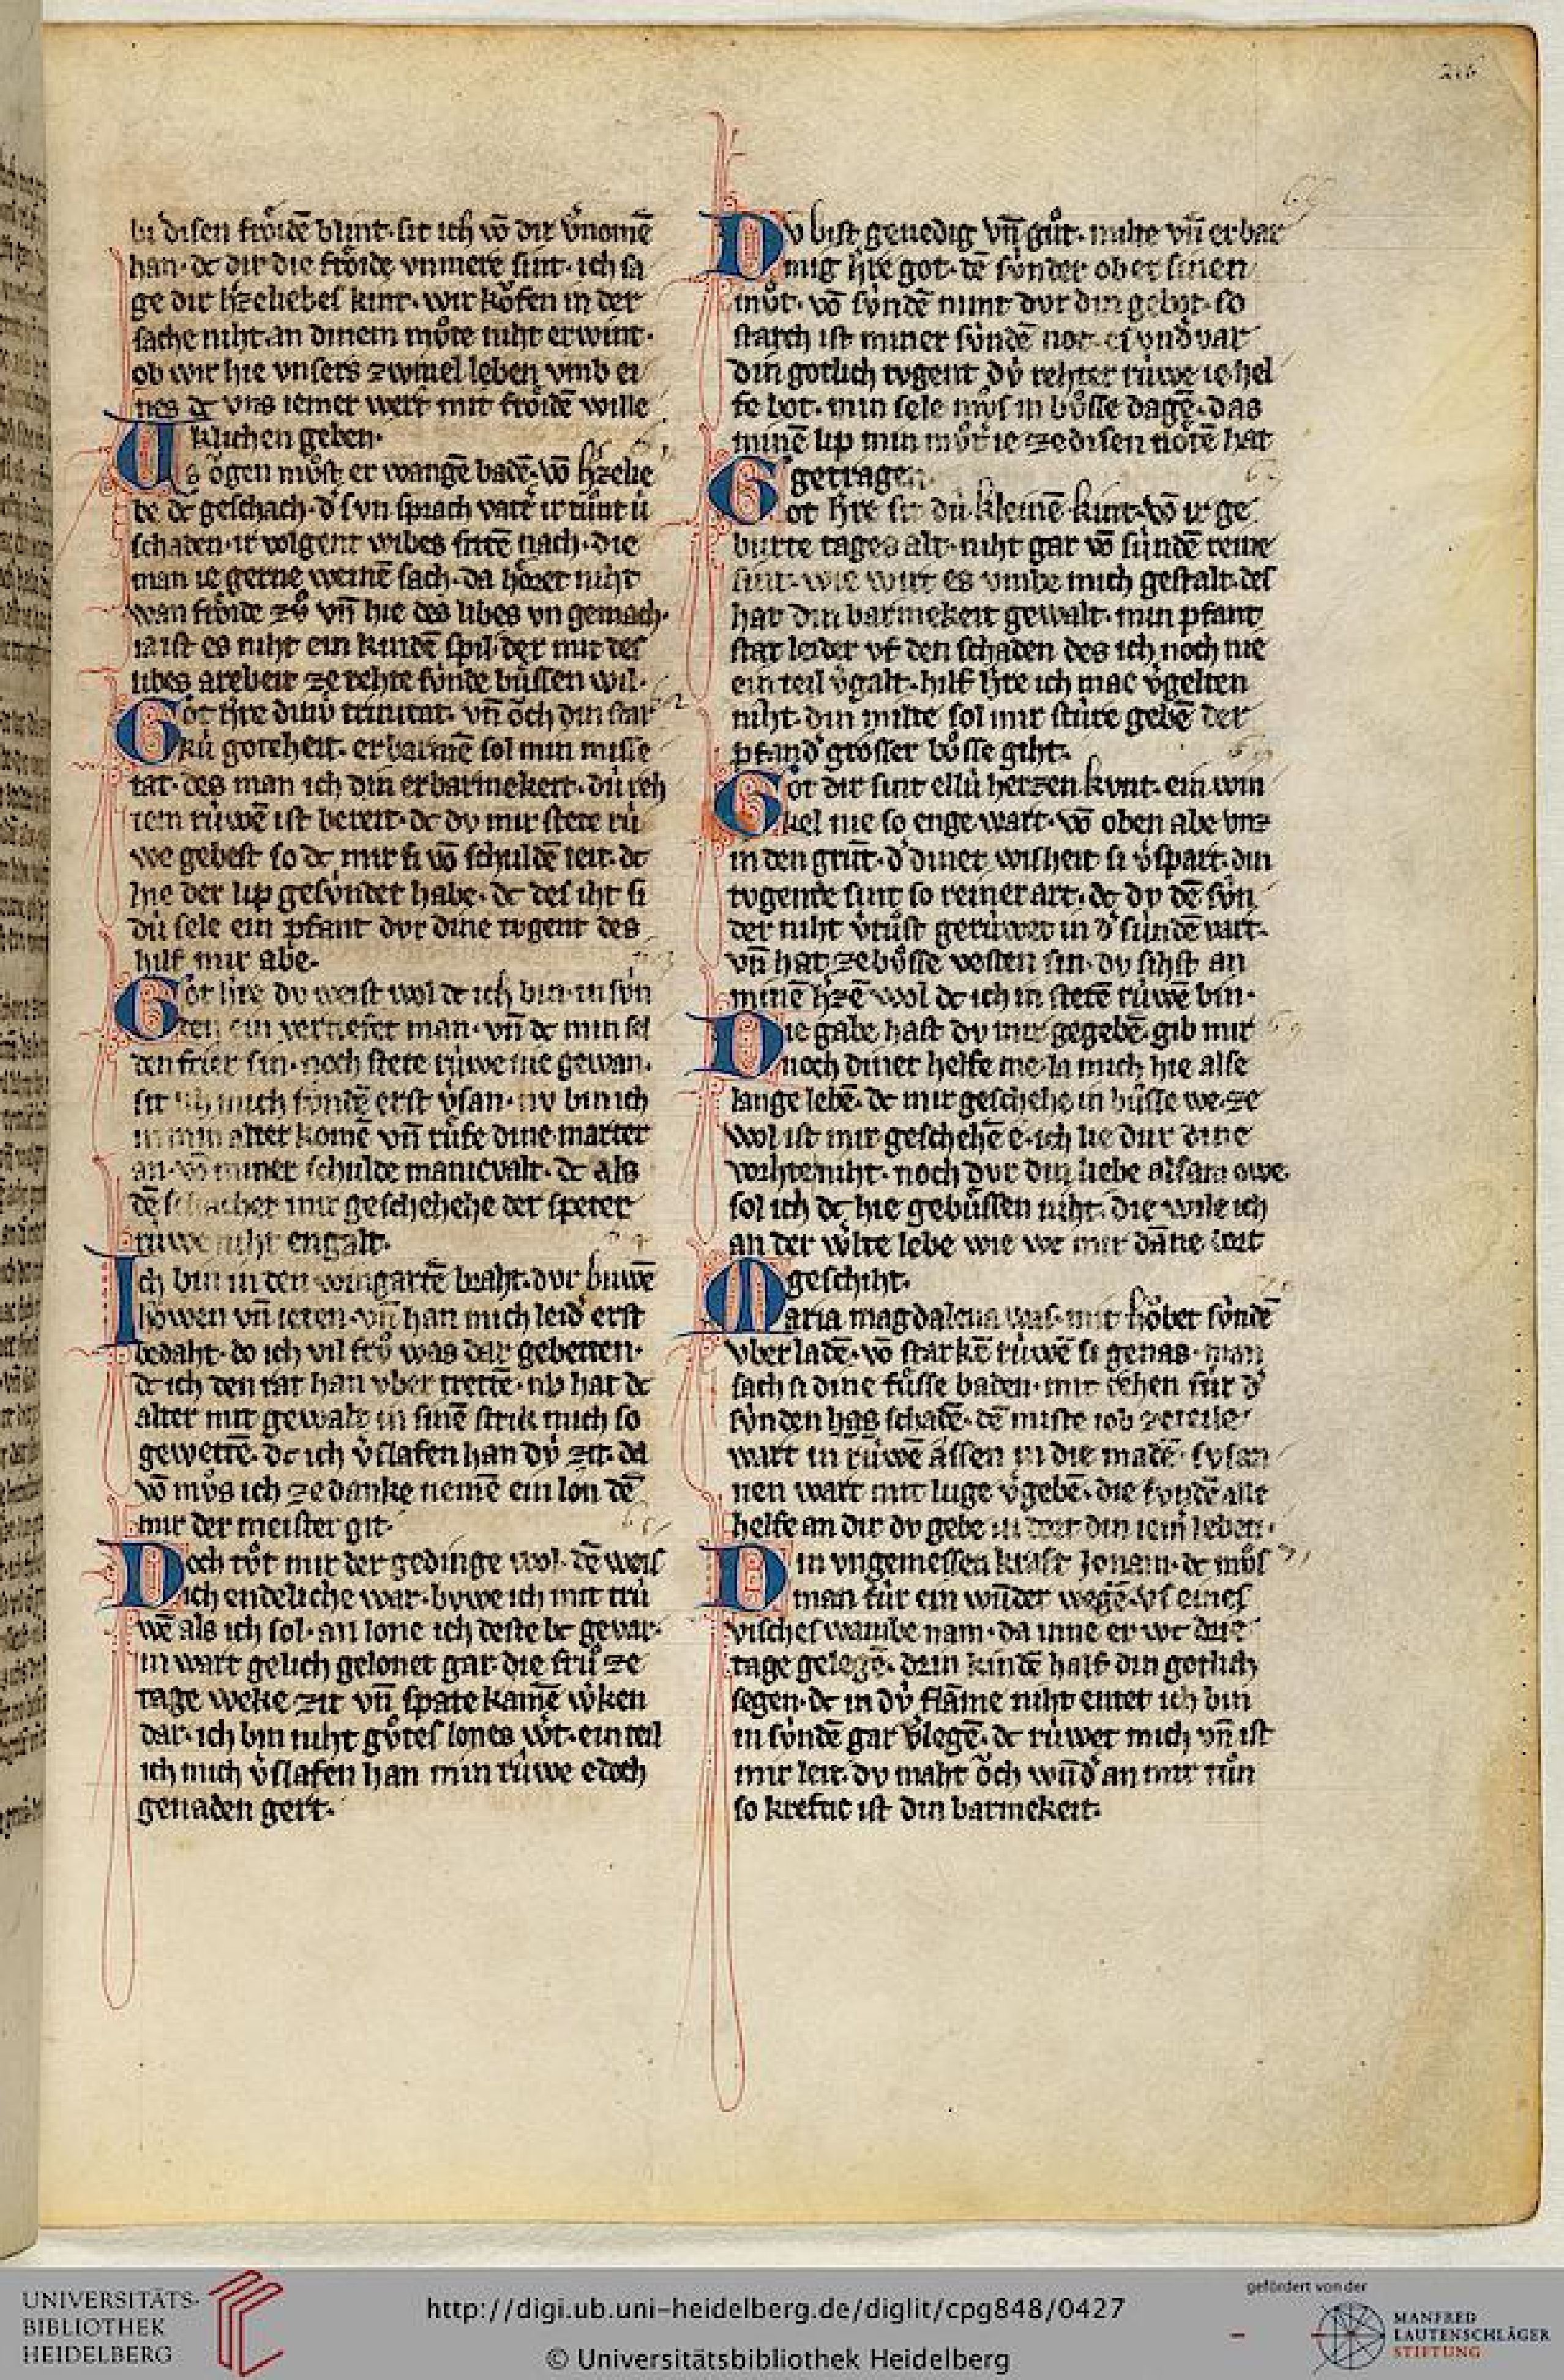 216
bi disen froͤidē blint· sit ich vō dir v̾nomē
han· dc dir die froͤide vnmere sint· ich sa
ge dir h̾zeliebes kint· wir koͮfen in der
sache niht· an dinem mvͦte niht erwint·
ob wir hie vnsers zwiuel leben vmb ei
nes dc vns iemer wert mit froͤidē wille
klichen geben·
61
Us oͮgen mvͦst er wangē badē· vō h̾zelie
be dc geschach· d̾ svn sprach vatt̾ ir tuͦnt ú
schaden· ir volgent wibes sittē nach· die
man ie gerne weinē sach· da hoͤret niht
wan froͤide zvͦ vn̄ hie des libes vngemach·
ia ist es niht ein kindē spil· der mit des
libes arebeit ze rehte svnde buͤssen wil·
62
Got h̾re dinv́ trinitat· vn̄ oͮch din star
kú goteheit· erbarmē sol min misse
tat· des man ich din erbarmekeit· dú reh
tem rúwē ist bereit· dc dv mir stete rú
we gebest so dc mir si vō schuldē leit· dc
hie der lip gesvndet habe· dc des iht si
dú sele ein pfant dvr dine tvgent des
hilf mir abe·
63
Got h̾re dv weist wol dc ich bin· in svn
den ein vertiefet man· vn̄ dc min sel
den frier sin· noch stete rúwe nie gewan·
sit ich mich svndē erst v̾san· nv bin ich
in min alter komē vn̄ ruͤfe dine marter
an· vō miner schulde manicvalt· dc als
dē schacher mir geschehehe der speter
rúwe niht engalt·
64
Ich bin in den wingartē braht· dvr buwē
hoͮwen vn̄ ieten· vn̄ han mich leid̾ erst
bedaht· do ich vil frvͦ was dar gebetten·
dc ich den rat han vber trettē· nv hat dc
alter mit gewalt in sinē strik mich so
gewettē· dc ich v̾slafen han dv́ zit· da
vō mvͦs ich ze danke nemē ein lon dē
mir der meister git·
65
Doch toͮt mir der gedinge wol· dē weis
ich endeliche war· bvwe ich mit trú
wē als ich sol· an lone ich deste bc gevar·
in wart gelich gelonet gar· die frvͦ ze
tage weke zit vn̄ spate kamē wken
dar· ich bin niht gvͦtes lones w̾t· ein teil
ich mich v̾slafen han min rúwe edoch
genaden gert·
66
Dv bist genedig vn̄ gvͦt· milte vn̄ erbar
mig h̾re got· dē svnder ober sinen
mvͦt· vō svndē nimt dvr din gebot· so
starch ist miner svndē not· es vnd̾var
din gotlich tvgent dv́ rehter rúwe ie hel
fe bot· min sele mvͦs in bvͦsse dagē· das
minē lip min mvͦt ie ze disen noͤtē hat
getragen·
67
Got h̾re sit dú kleinē kint· vō ir ge
burte tages alt· niht gar vō sv́ndē reine
sint· wie wirt es vmbe mich gestalt· des
hat din barmekeit gewalt· min pfant
stat leider vf den schaden des ich noch nie
ein teil v̾galt· hilf h̾re ich mac v̾gelten
niht· din milte sol mir stúre gebē der
pfand̾ grosser bvͦsse giht·
68
Got dir sint ellú herzen kvnt· ein win
kel nie so enge wart· vō oben abe vnz
in den grvͦt· d̾ diner wisheit si v̾spart· din
tvgende sint so reiner art· dc dv dē svn
der niht v̾tuͦst gerúwet in d̾ súndē vart·
vn̄ hat ze bvͦsse vesten sin· dv sihst an
minē h̾zē wol dc ich in stetē rúwē bin·
69
Die gabe hast dv mir gegebē· gib mir
noch diner helfe me· la mich hie alse
lange lebē· dc mir geschehe in buͤsse we· ze
wol ist mir geschehē e· ich lie dur dine
vorhte niht· noch dvr din liebe alsam owe
sol ich dc hie gebuͤssen niht· die wile ich
an der w̾lte lebe wie we mir dāne leit
geschiht·
70
Maria magdalena was· mit hoͮbet svndē
vberladē· vō starkē rúwē si genas· man
sach si dine fuͤsse baden· mit trehen für d̾
svnden has schadē· dē miste iob ze teile
wart in rúwē assen in die madē· svsan
nen wart mit luge v̾gebē· die fvndē alle
helfe an dir dv gebe in dort din iem̾ leben·
71
Din vngemessen kraft Jonam· dc mvͦs
man für ein wnder wegē· vs eines
visches wambe nam· da inne er wc drie
tage gelegē· drin kindē half din gotlich
segen· dc in dv́ flāme niht entet ich bin
in svndē gar v̾legē· dc rúwet mich vn̄ ist
mir leit· dv maht oͮch wnd̾ an mir tuͦn
so kreftic ist din barmekeit·
UNIVERSITÄTS-
BIBLIOTHEK
HEIDELBERG
http://digi.ub.uni-heidelberg.de/diglit/cpg848/0427
© Universitätsbibliothek Heidelberg
gefördert von der
MANFRED
LAUTENSCHLÄGER
STIFTUNG